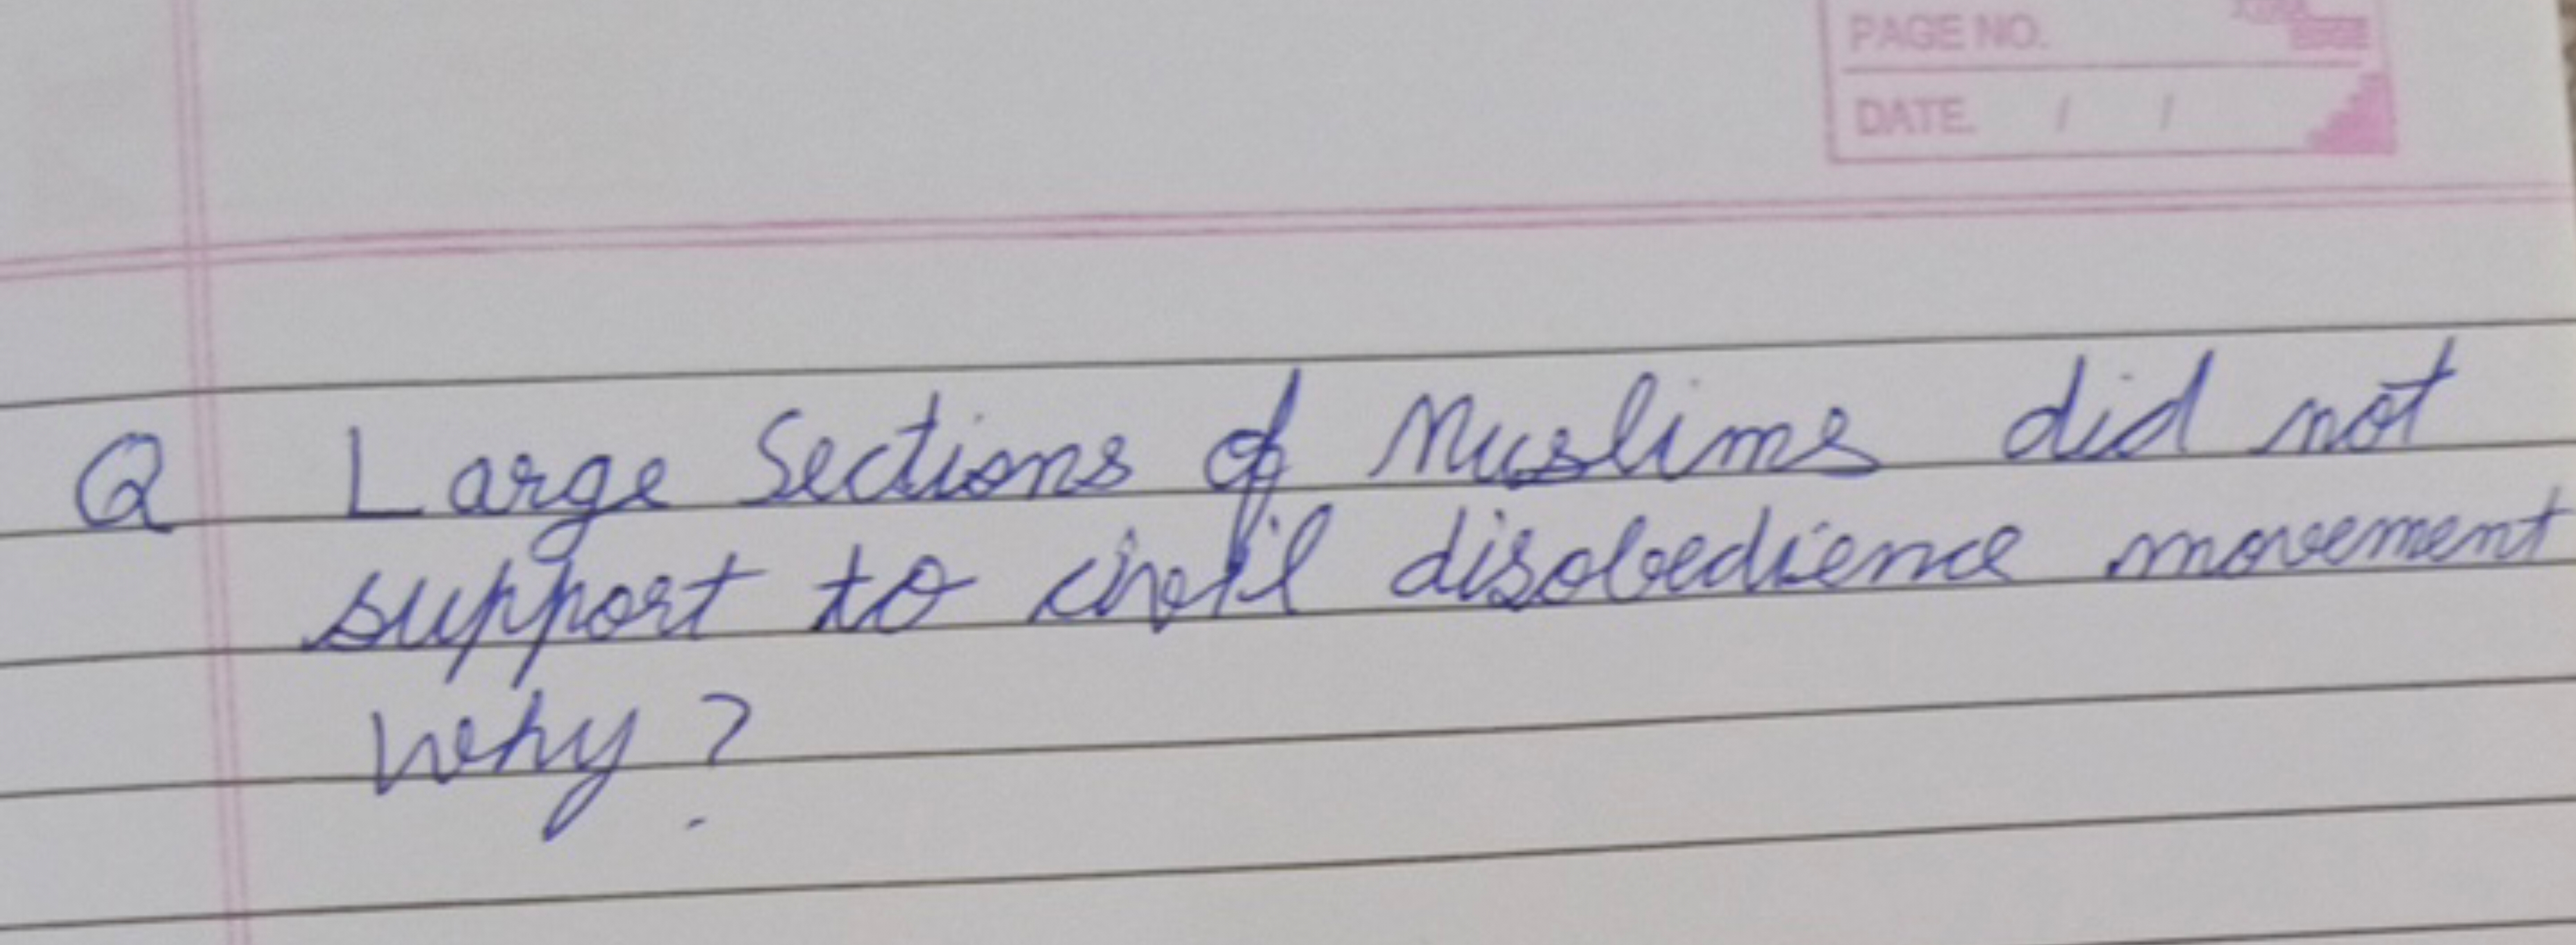 PAGE NO.
DATE. / /
Q Large Sections of Muslims did not
support to civil disobedience movement
why?